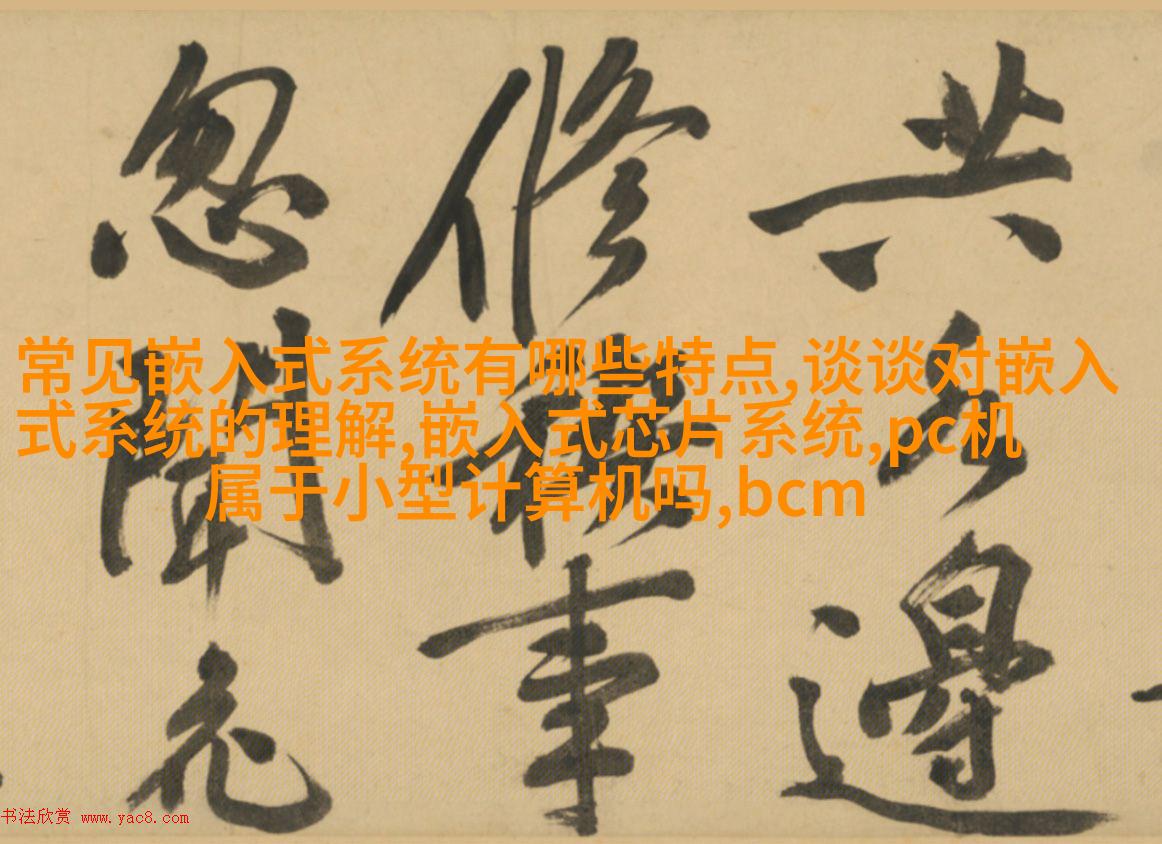 共邊
修禊事
忽
常见嵌入式系统有哪些特点,谈谈对嵌入
式系统的理解,嵌入式芯片系统,pc机
属于小型计算机吗,bcm
书法欣赏 www.yac8.com